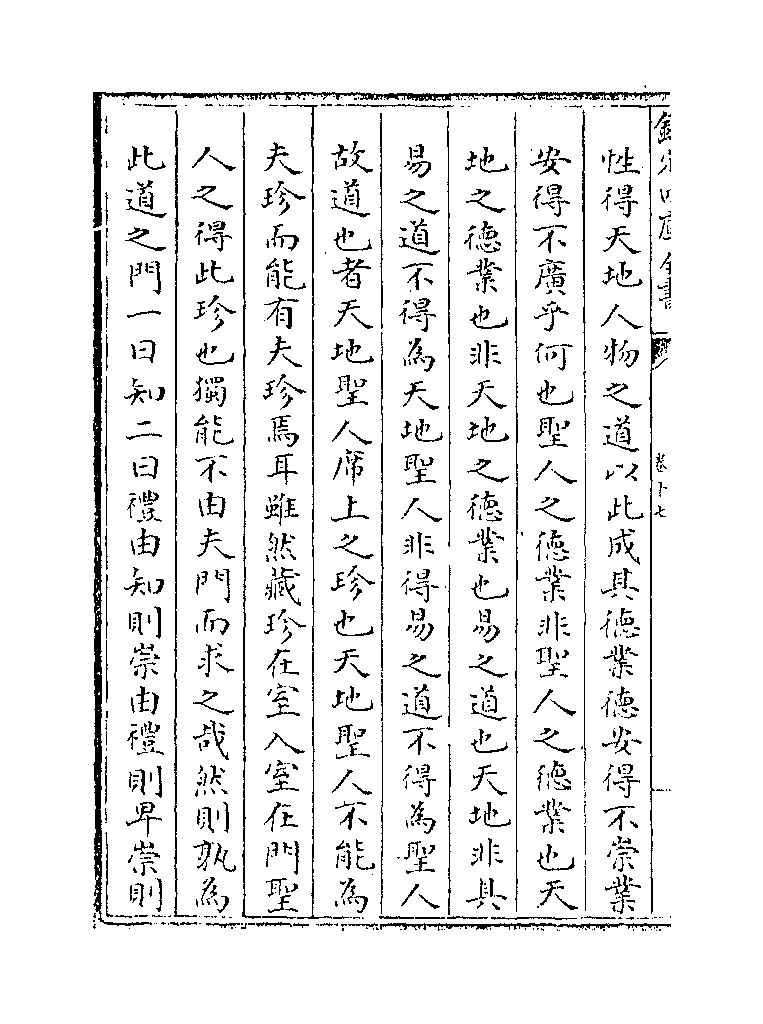 欽定四庫全書
卷十七
性得天地人物之道以此成其德業德安得不崇業
安得不廣乎何也聖人之德業非聖人之德業也天
地之德業也非天地之德業也易之道也天地非具
易之道不得為天地聖人非得易之道不得為聖人
故道也者天地聖人席上之珍也天地聖人不能為
夫珍而能有夫珍焉耳雖然藏珍在室入室在門聖
人之得此珍也獨能不由夫門而求之哉然則孰為
此道之門一曰知二曰禮由知則崇由禮則卑崇則